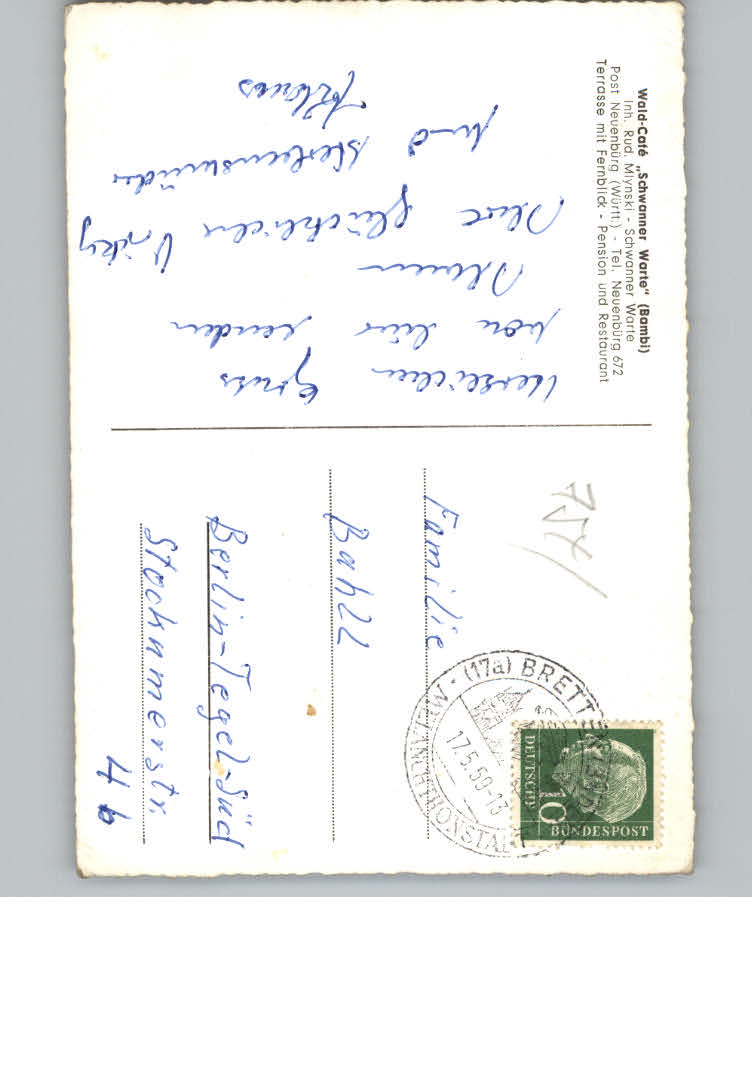 Wald-Café „Schwanner Warte" (Bambi)
Inh. Rud. Mlynski - Schwanner Warte
Post Neuenbürg (Württ.) - Tel. Neuenbürg 672
Terrasse mit Fernblick - Pension und Restaurant
Herzlichen Gruss
von hier senden
Ihnen
Ihre glücklichen
und
Klaus
757
Familie
Bahll
Berlin-Tegel-Süd
4b
(17a) BRETTEN
17.5.59-13
DEUTSCHE
BUNDESPOST
10